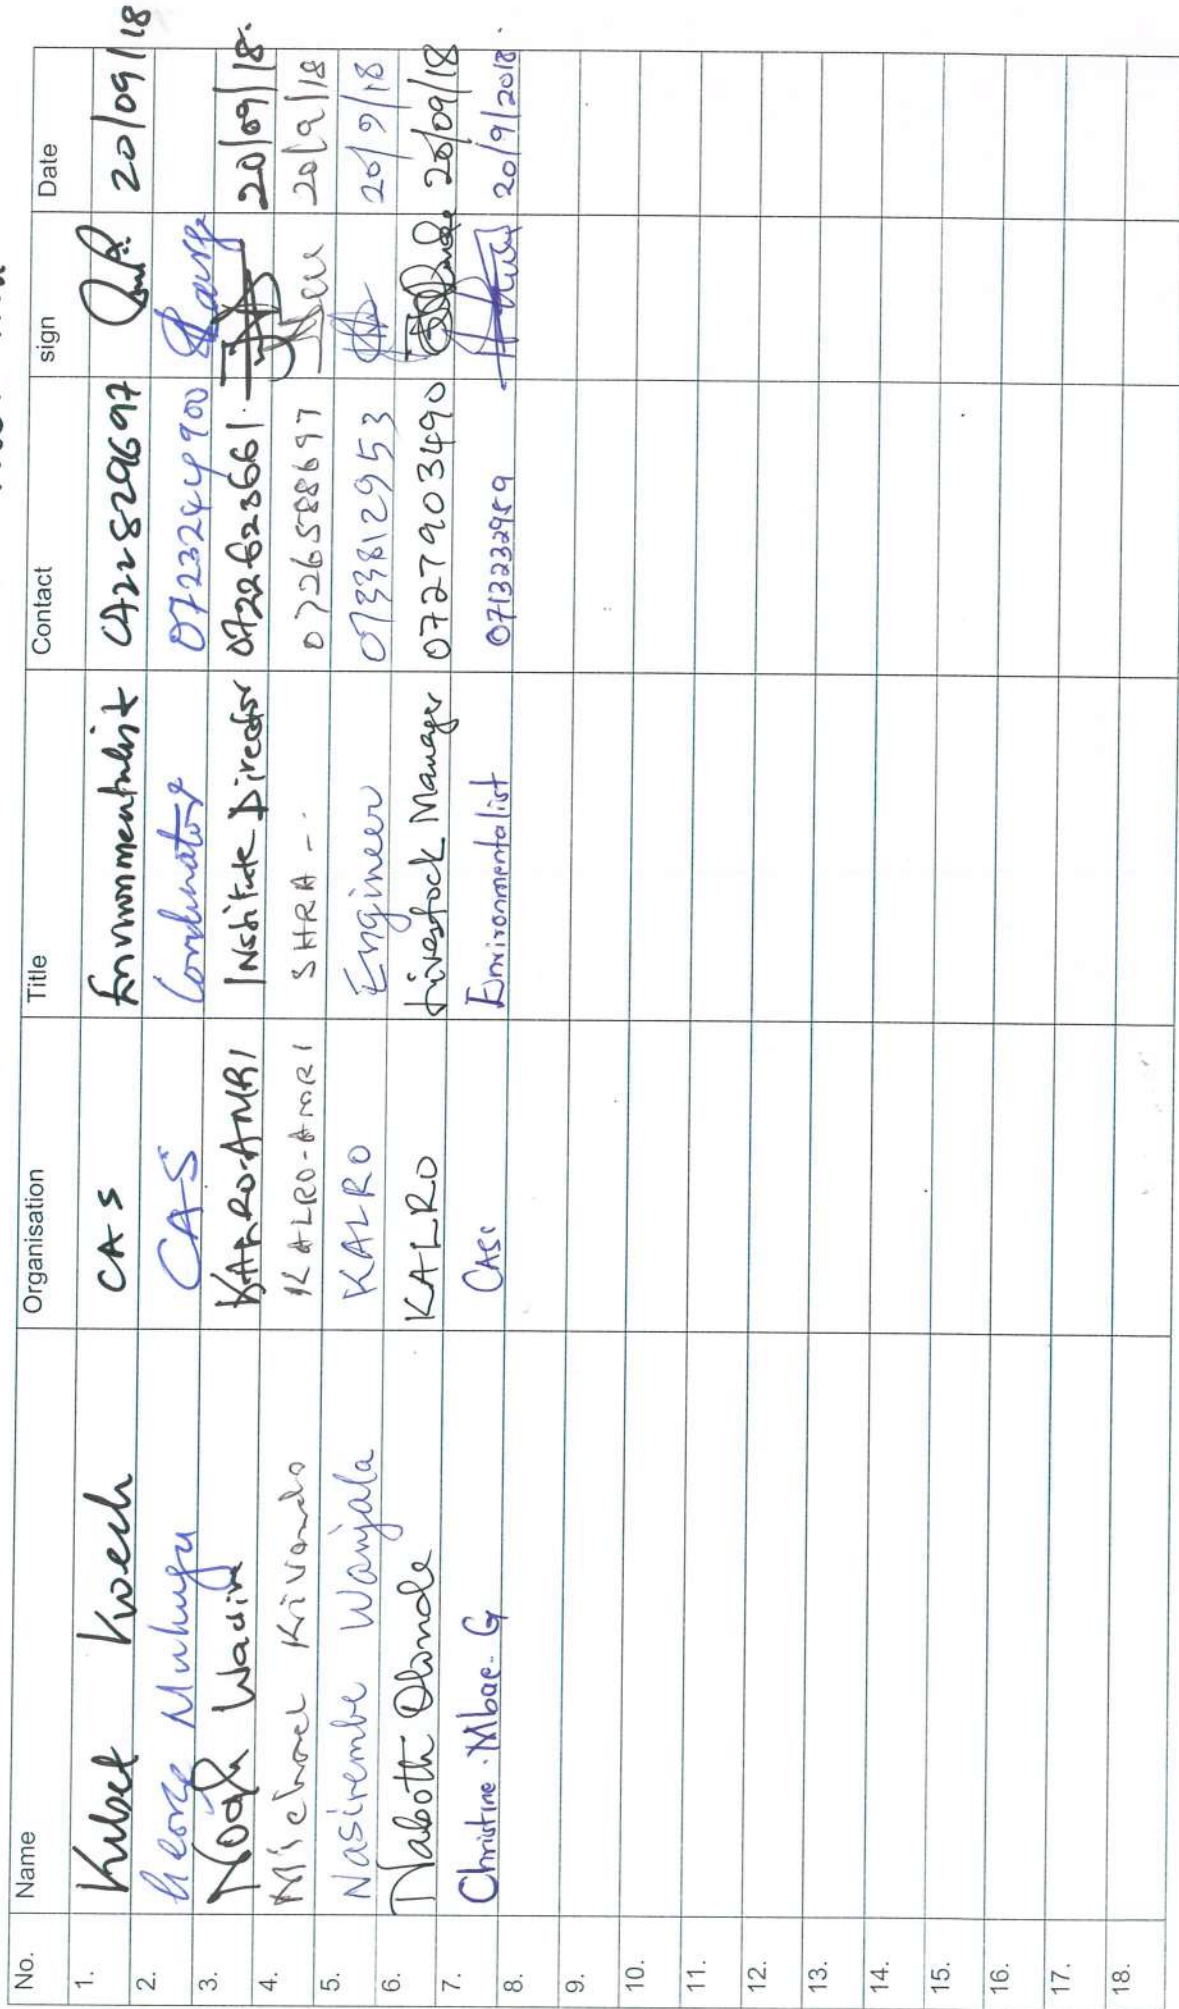 No. Name Organisation Title Contact sign Date
1. Kibet Koech CAS Environmentalist 0722829697 20/09/18
2. George Muhugu CAS Cordinator 0723244900
3. Noah Wawire KALRO-AMRI Institute Director 0722623661 20/09/18.
4. Michael KALRO-AMRI SHRA - 0726588697 20/9/18
5. Nasirembe Wanjala KALRO Engineer 0733812953 20/9/18
6. Naboth KALRO Livestock Manager 0727903490 20/09/18
7. Christine. Mbae. G CASC Environmentalist 0713232959 20/9/2018
8.
9.
10.
11.
12.
13.
14.
15.
16.
17.
18.